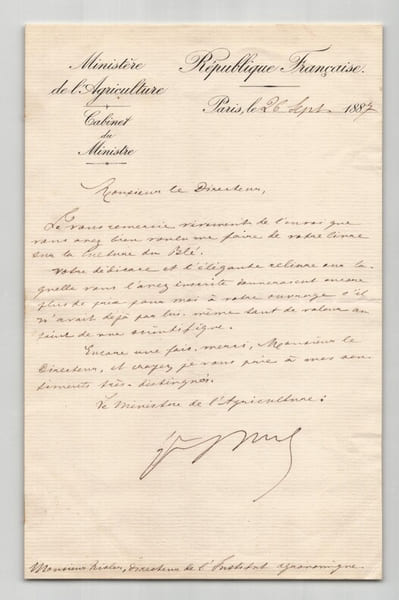 Ministère
de l'Agriculture
Cabinet
du
Ministre
République Française.
Paris, le 26 Sept 1887
Monsieur le Directeur,
Je vous remercie vivement de l'envoi que
vous avez bien voulu me faire de votre livre
sur la Culture du Blé.
Votre dédicace et l'élégante reliure sur la-
quelle vous l'avez inscrite donneraient encore
plus de prix pour moi à votre ouvrage s'il
n'avait déjà par lui même tant de valeur au
point de vue scientifique.
Encore une fois, merci, Monsieur le
Directeur, et croyez je vous prie à mes sen-
timents très-distingués.
Le Ministre de l'Agriculture:
Monsieur Risler, Directeur de l'Institut agronomique.